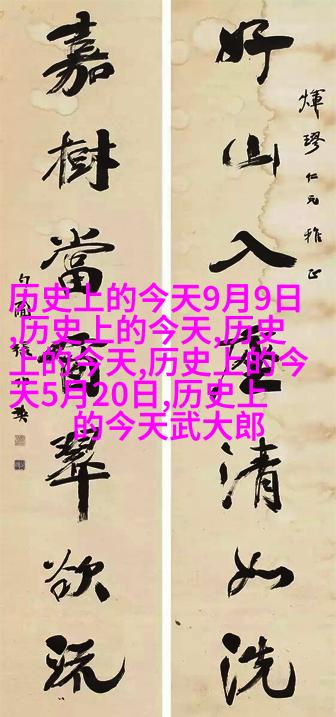 煇璆仁兄雅正
好山入座清如洗
嘉樹當窗翠欲流
历史上的今天9月9日
,历史上的今天,历史
上的今天,历史上的今
天5月20日,历史上
的今天武大郎